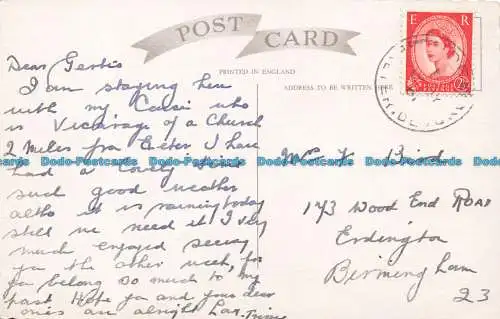 POST CARD
PRINTED IN ENGLAND
ADDRESS TO BE WRITTEN HERE
E R
Dear Gertie
I am staying here
with my Cousin who
is Vicarage of a Church
2 Miles from Exeter I have
had a Lovely
such good weather
altho it is raining today
still we need it I very
much enjoyed seeing
you the other week, for
you belong so much to my
past Hope you and your dear
ones are alright
Mrs Bird
173 Wood End Road
Erdington
Birmingham
23
Dodo-Postcards Dodo-Postcards Dodo-Postcards Dodo-Postcards